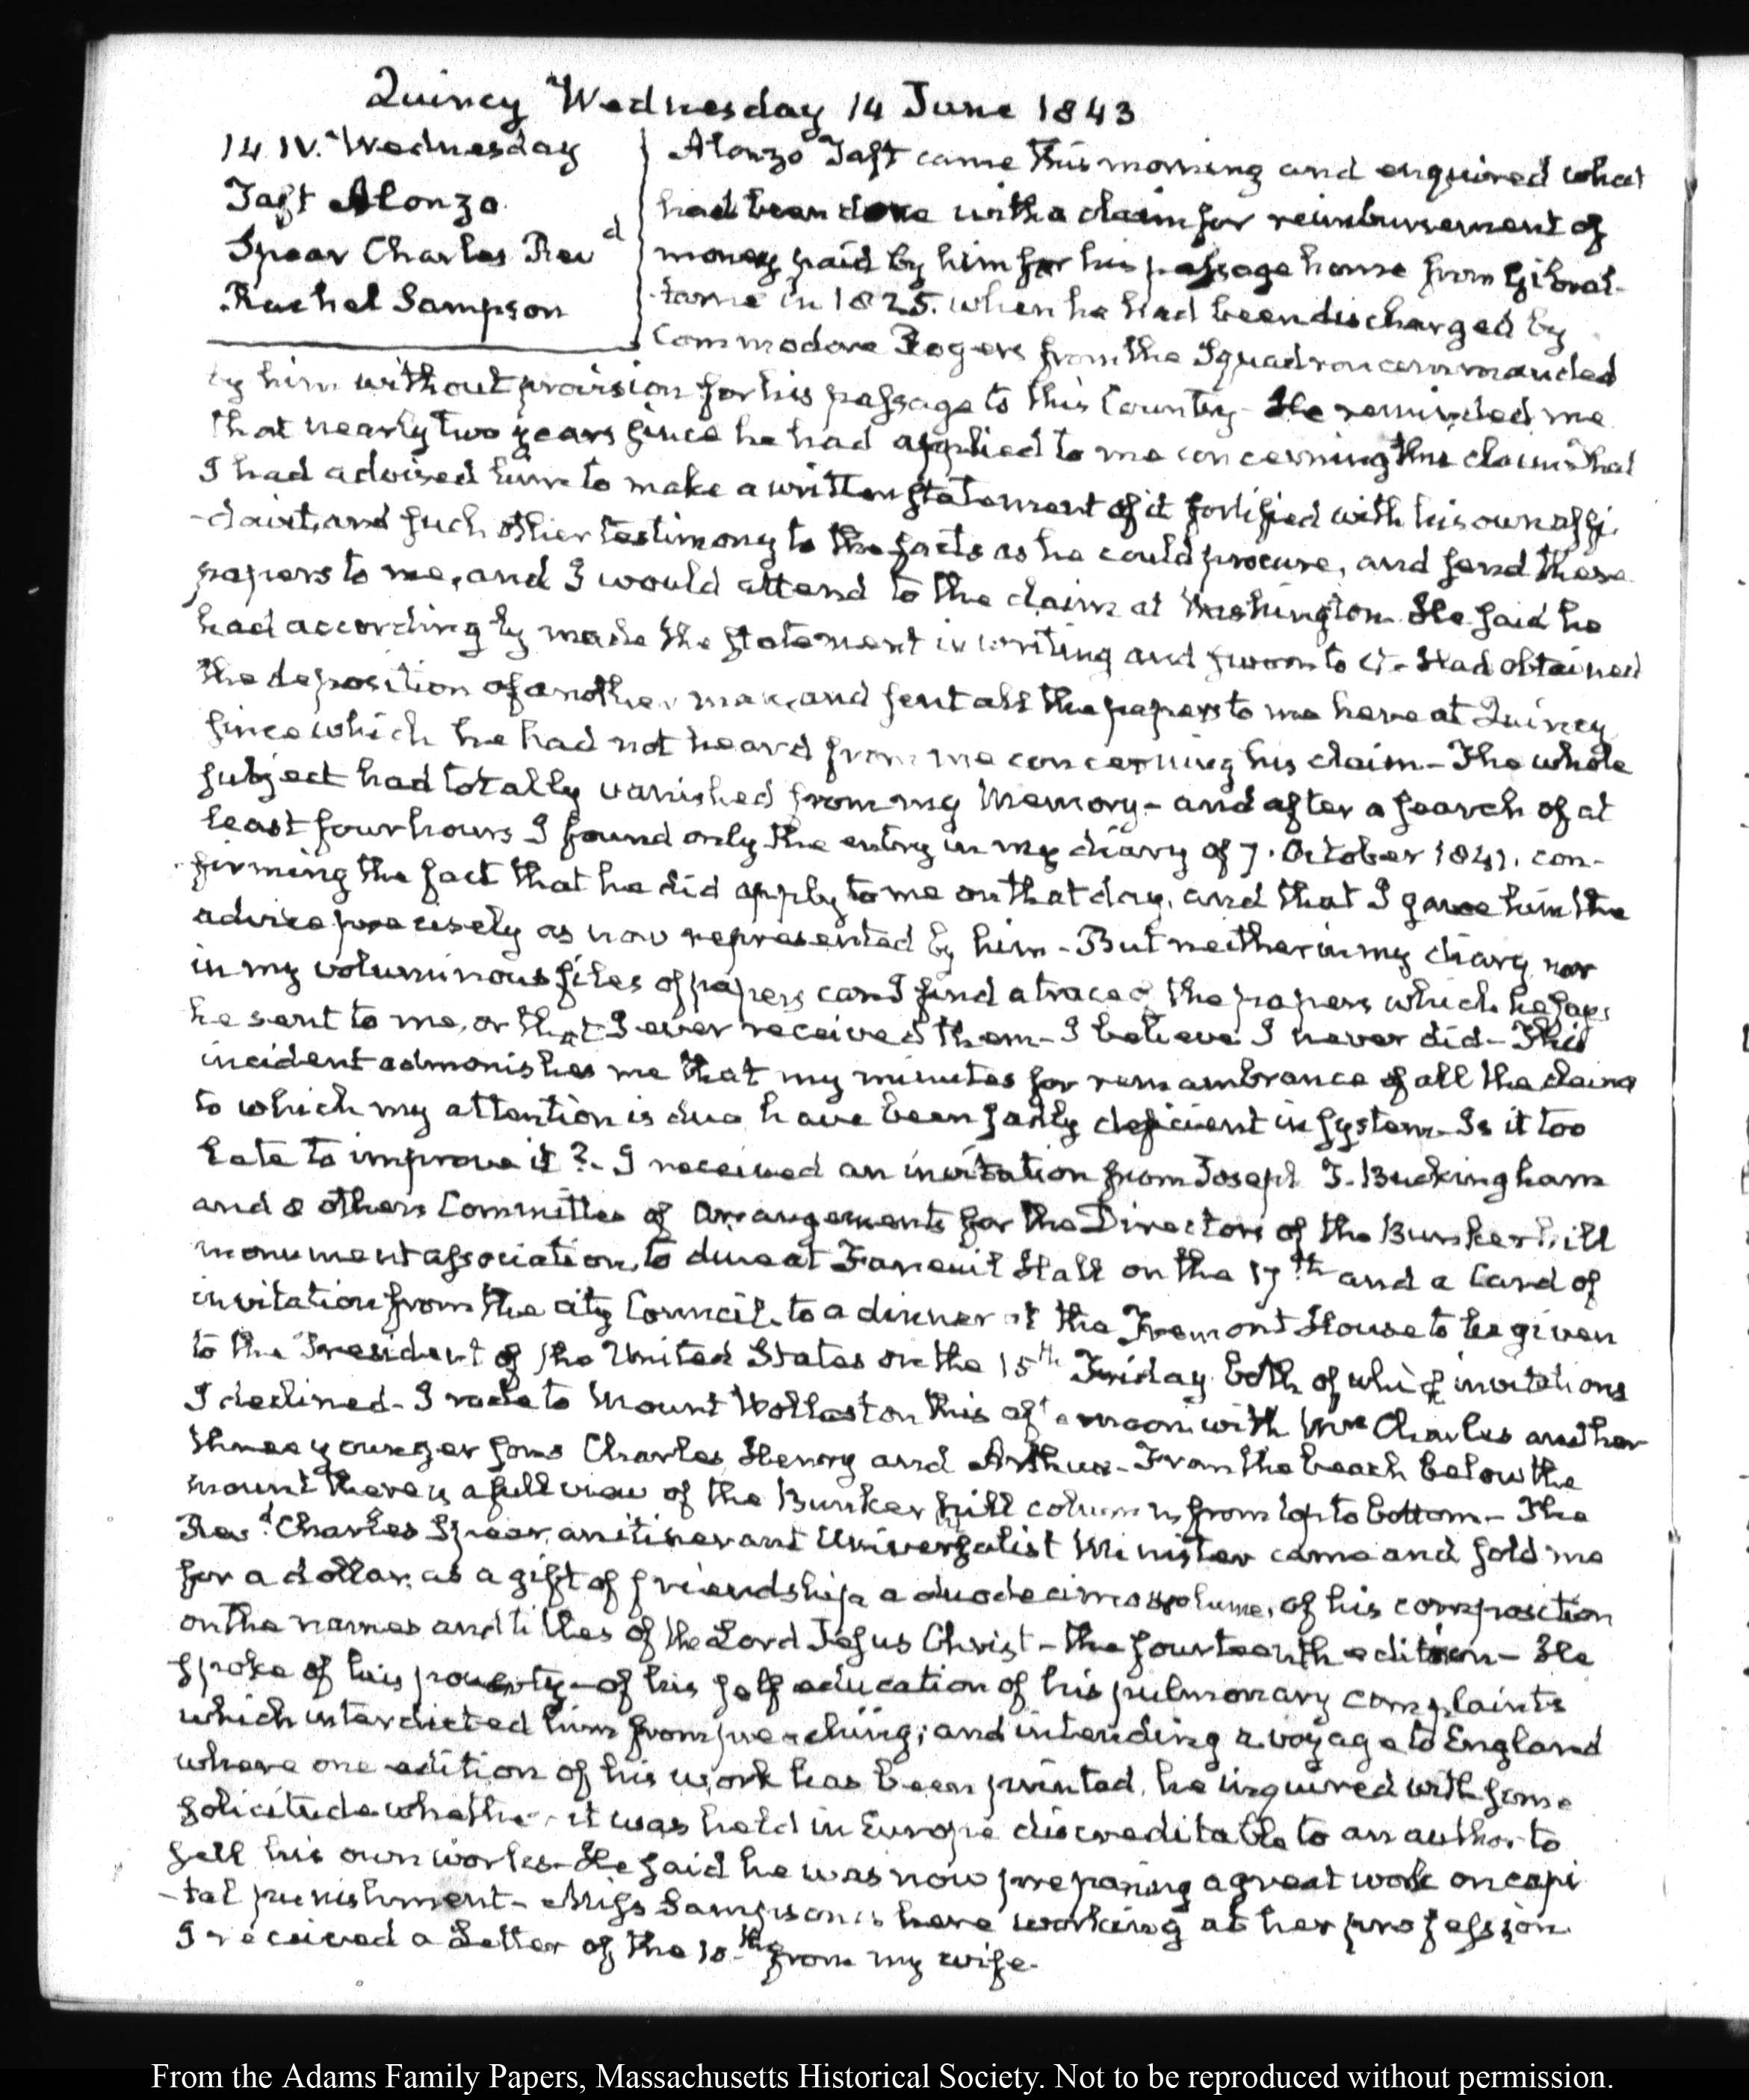 Quincy Wednesday 14 June 1843
14 IV. Wednesday
Taft Alonzo
Spear Charles Revd
Rachel Sampson
Alonzo Taft came this morning and enquired what
had been done with a claim for reimbursement of
money paid by him for his passage home from Gibral-
-tar in 1825. when he had been discharged by
Commodore Rogers from the Squadron commanded
by him without provision for his passage to this Country - He reminded me
that nearly two years since he had applied to me concerning this claim that
I had advised him to make a written statement of it fortified with his own affi-
-davit, and such other testimony to the facts as he could procure, and send these
papers to me, and I would attend to the claim at Washington. He said he
had accordingly made the statement in writing and sworn to it - Had obtained
the deposition of another man, and sent all the papers to me here at Quincy
since which he had not heard from me concerning his claim - The whole
subject had totally vanished from my memory - and after a search of at
least four hours I found only the entry in my diary of 7. October 1841. con-
-firming the fact that he did apply to me on that day, and that I gave him the
advice precisely as now represented by him - But neither in my diary nor
in my voluminous files of papers can I find a trace of the papers which he says
he sent to me, or that I ever received them - I believe I never did - This
incident admonishes me that my minutes for remembrance of all the claims
to which my attention is due have been sadly deficient in system - Is it too
late to improve it? - I received an invitation from Joseph T. Buckingham
and 8 others Committee of Arrangements for the Directors of the Bunker hill
monument association, to dine at Faneuil Hall on the 17th and a Card of
invitation from the city Council, to a dinner at the Tremont House to be given
to the President of the United States on the 15th Friday both of which invitations
I declined - I rode to Mount Wollaston this afternoon with Mrs Charles and her
three younger sons Charles, Henry and Arthur - From the beach below the
mount there is a full view of the Bunker hill column from top to bottom - The
Revd. Charles Spear, an itinerant Universalist Minister came and sold me
for a dollar, as a gift of friendship a duodecimo volume, of his composition
on the names and titles of the Lord Jesus Christ - the fourteenth edition - He
spoke of his poverty - of his self education of his pulmonary complaints
which interdicted him from preaching; and intending a voyage to England
where one edition of his work has been printed, he inquired with some
solicitude whether it was held in Europe discreditable to an author to
sell his own works - He said he was now preparing a great work on capi
-tal punishment - Miss Sampson is here working at her profession.
I received a Letter of the 10th from my wife.
From the Adams Family Papers, Massachusetts Historical Society. Not to be reproduced without permission.